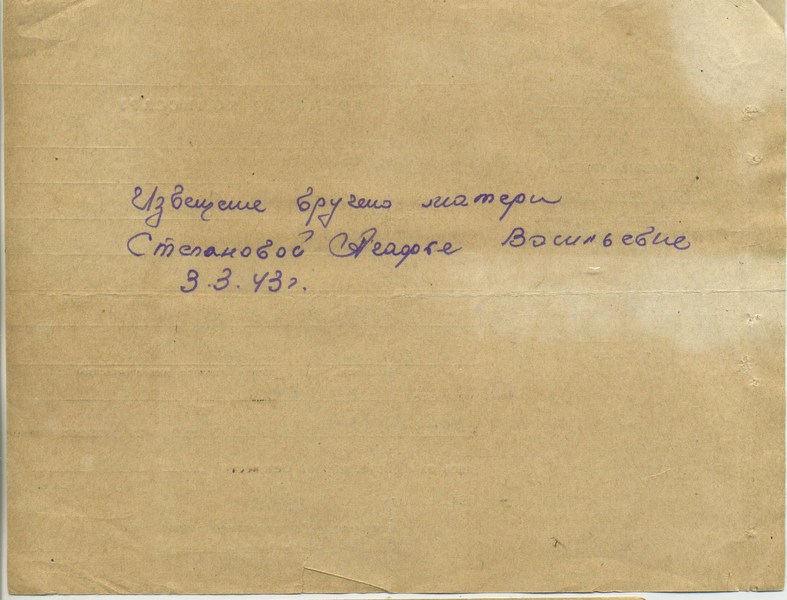 Извещение вручено матери
Степановой Агафье Васильевне
3.3.43г.